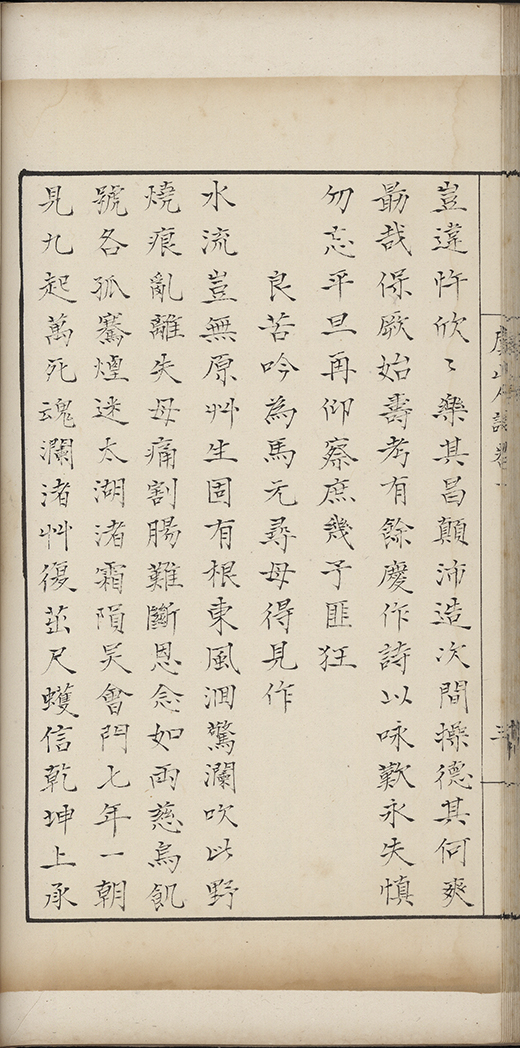 豈違忤欣〻樂其昌顛沛造次間操德其何爽
勗哉保厥始壽考有餘慶作詩以咏歎永失慎
勿忘平旦再仰察庶幾子匪狂
良苦吟為馬元尋母得見作
水流豈無原艸生固有根東風洄驚瀾吹此野
燒痕亂離失母痛割腸難斷恩念如兩慈烏飢
號各孤騫煙迷太湖渚霜隕吳會門七年一朝
見九起萬死魂瀾渚艸復茁尺蠖信乾坤上承
三